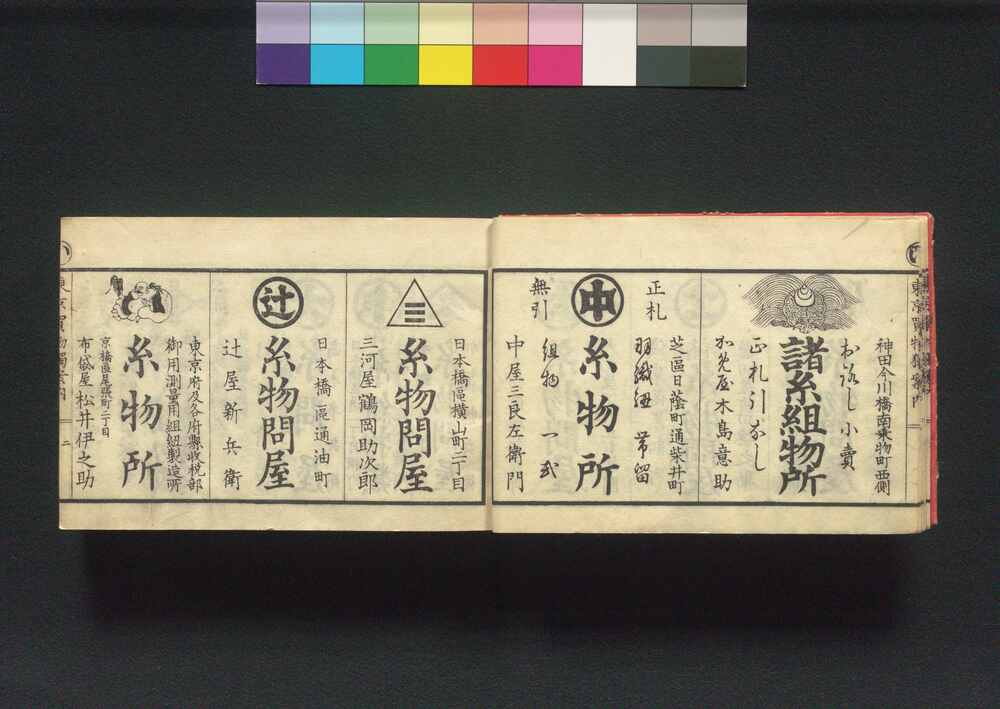 神田今川橋南乗物町西側
おろし小賣
諸糸組物所
正札引なし
かめ屋木島意助
芝區日蔭町通柴井町
正札
羽織紐 帯留
中
糸物所
組物一式
無引
中屋三良左衛門
日本橋區横山町二丁目
三
糸物問屋
三河屋鶴岡助次郎
日本橋區通油町
辻
糸物問屋
辻屋新兵衛
東京府及各府縣收税部
御用測量用組紐製造所
糸物所
京橋區尾張町二丁目
布袋屋松井伊之助
二